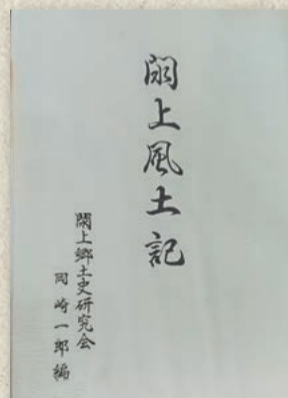 閖上風土記
閖上郷土史研究会
岡崎一郎編